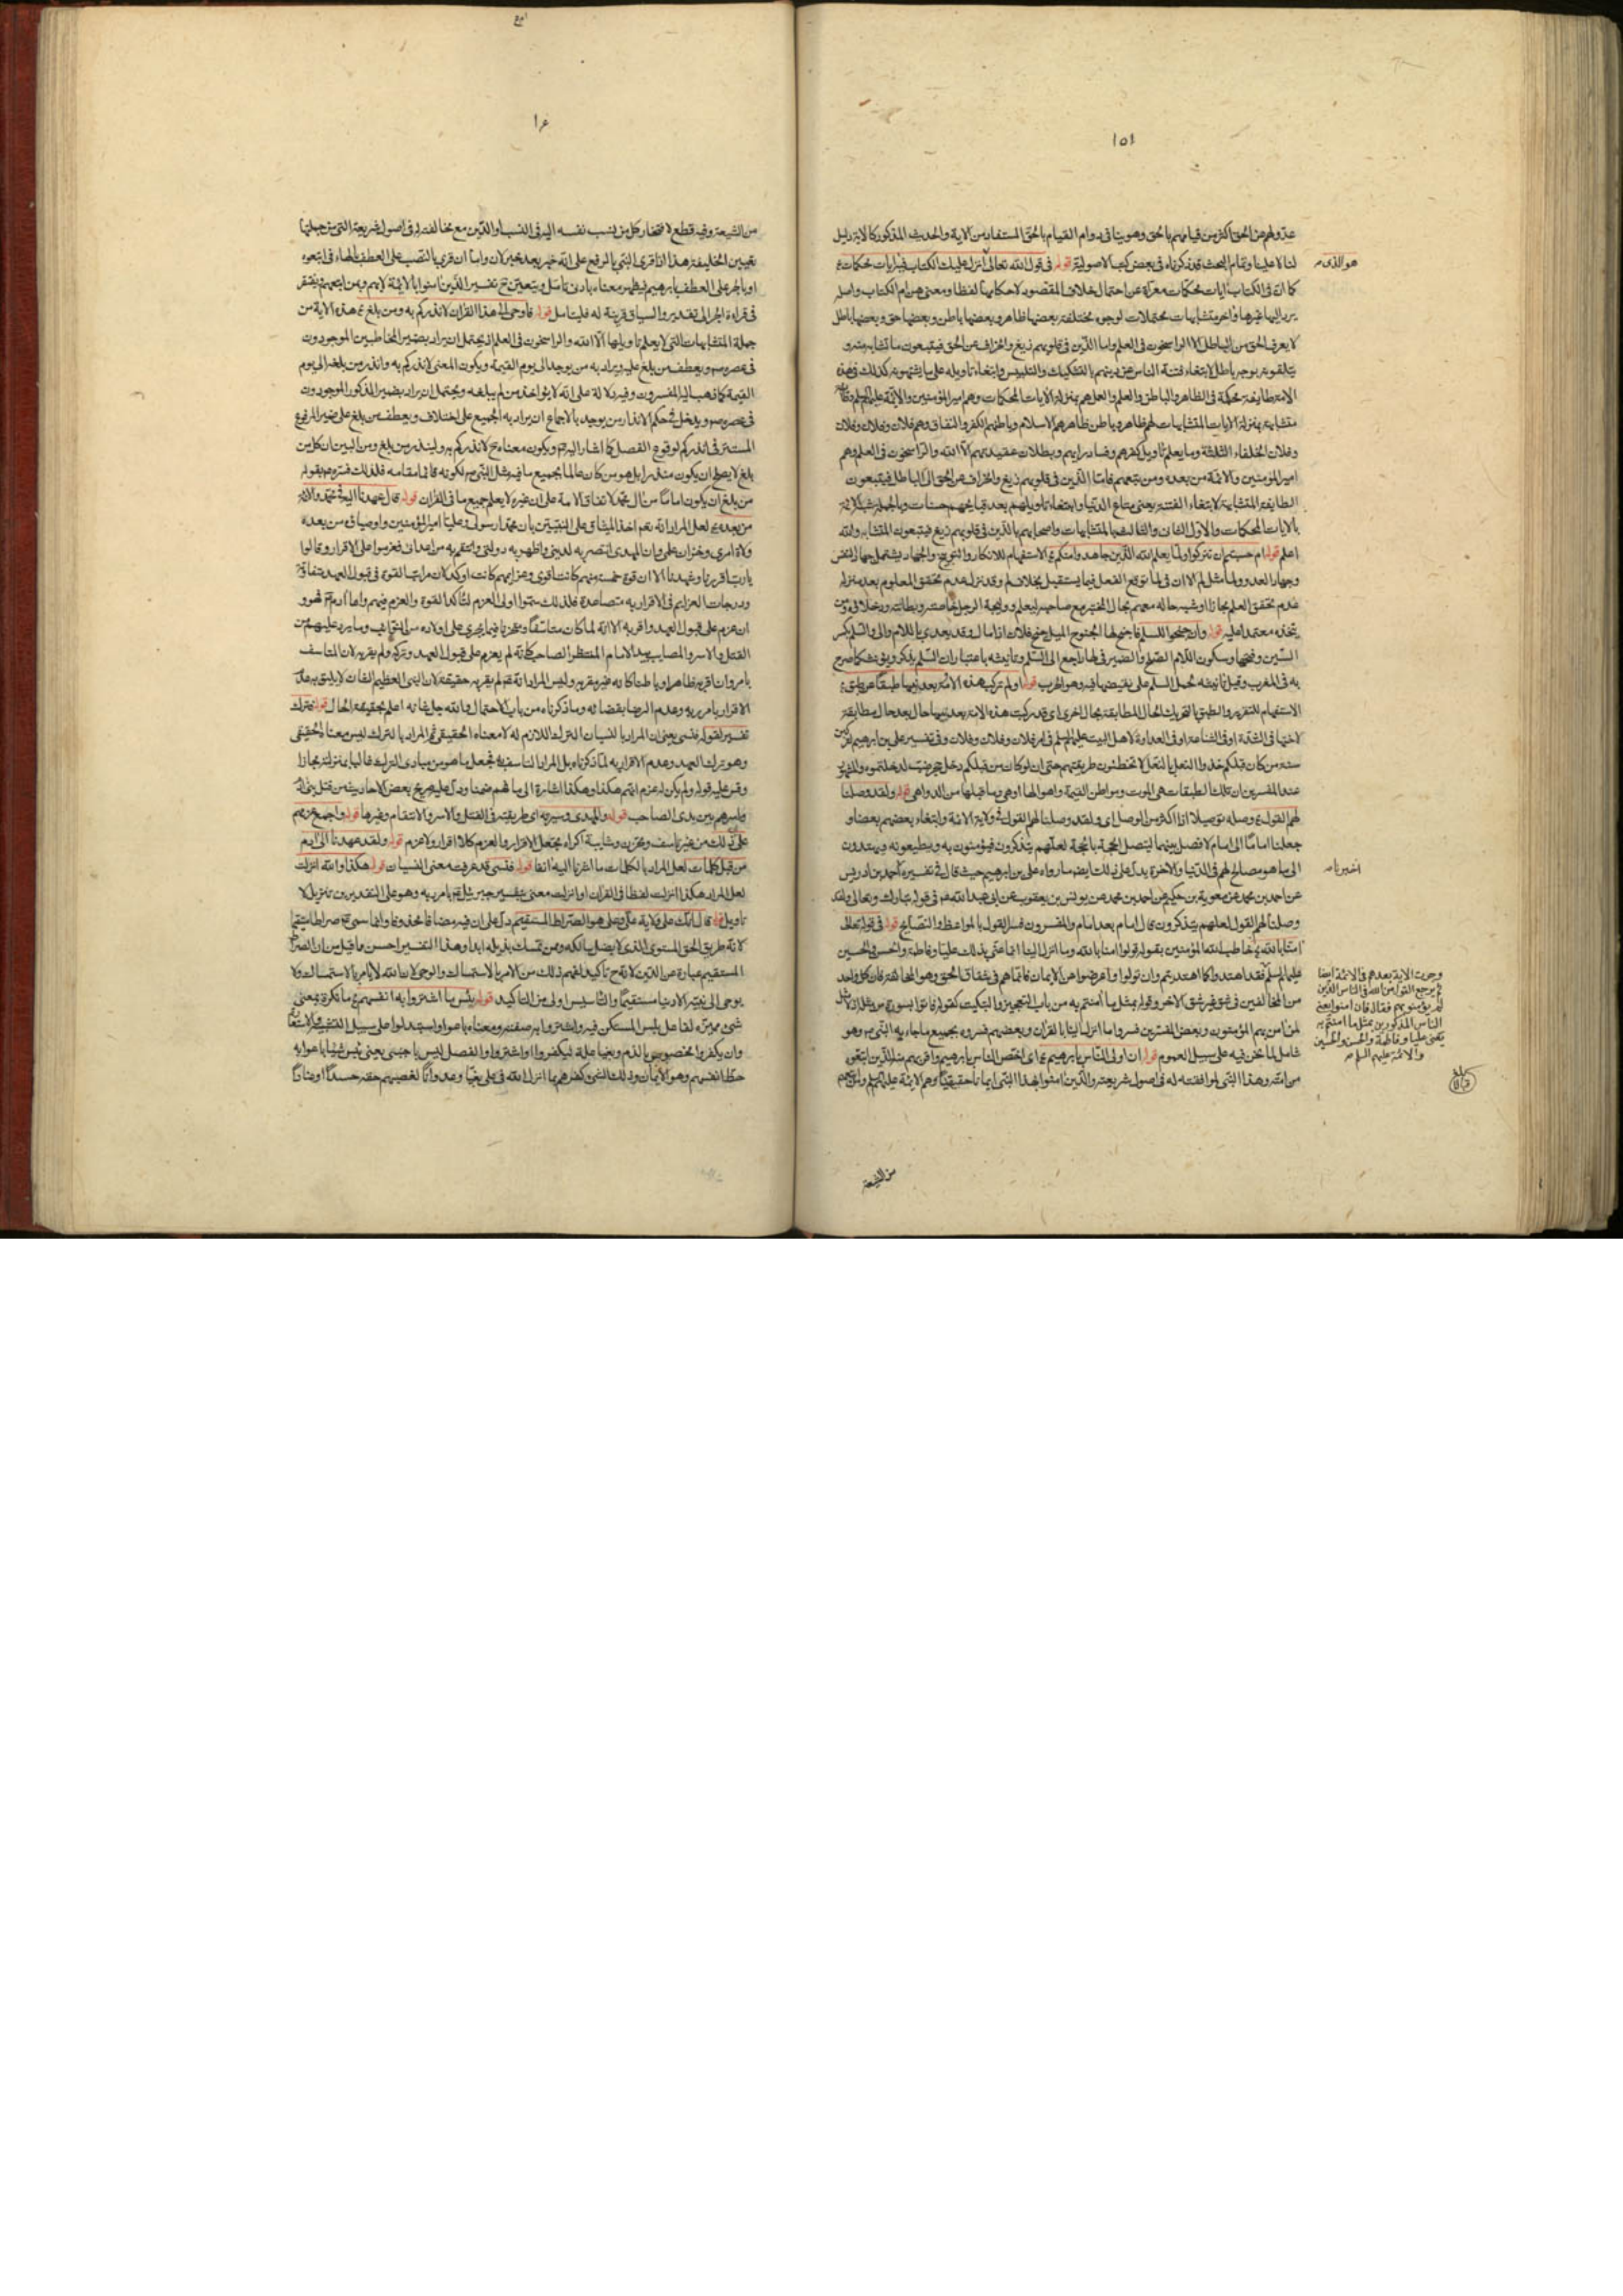 ١٥١
عدولهم عن الحق اكثر من قيامهم بالحق وهو ينافى دوام القيام بالحق المستفاد من الاية والحديث المذكور كالاية دليل
لنا لا علينا وتمام البحث قد ذكرناه فى بعض كتبنا الاصولية قوله فى قول الله تعالى انزل عليك الكتاب فيه ايات محكمات
هو الذى
كما ان فى الكتاب ايات محكمات معراة عن احتمال خلاف المقصود لاحكامها لفظا ومعنى هن ام الكتاب واصله
يرد اليها غيرها واخر متشابهات محتملات لوجوه مختلفة بعضها ظاهر وبعضها باطن وبعضها حق وبعضها باطل
لا يعرف الحق من الباطل الا الراسخون فى العلم واما الذين فى قلوبهم زيغ وانحراف عن الحق فيتبعون ما تشابه منه و
يتلقونه بوجه باطل ابتغاء فتنة الناس عن دينهم بالتشكيك والتلبيس وابتغاء تاويله على ما يشتهونه كذلك فى هذه
الامة طايفة محكمة فى الظاهر والباطن والعلم والعمل هم بمنزلة الايات المحكمات وهم امير المؤمنين والائمة عليهم السلم
متشابهة بمنزلة الايات المتشابهات لهم ظاهر وباطن ظاهرهم الاسلام وباطنهم الكفر والنفاق وهم فلان وفلان وفلان
وفلان الخلفاء الثلثة وما يعلم تاويل كفرهم وفساد رايهم وبطلان عقيدتهم الا الله والراسخون فى العلم وهم
امير المؤمنين والائمة من بعده ومن يتبعهم فاما الذين فى قلوبهم زيغ وانحراف عن الحق الى الباطل فيتبعون
الطايفة المتشابهة لابتغاء الفتنة يعنى متاع الدنيا وابتغاء تاويلهم بعد قبايحهم حسنات وبالجملة شبه الائمة
بالايات المحكمات والاول الثانى والثالث بالمتشابهات واصحابهم بالذين فى قلوبهم زيغ فيتبعون المتشابه والله
اعلم قوله ام حسبتم ان تتركوا ولما يعلم الله الذين جاهدوا منكم الاستفهام للانكار والتوبيخ والجهاد يشتمل جهاد النفس
وجهاد العدو ولما مثل لم الا ان فى لما توقع الفعل فيما يستقبل بخلاف لم وقد نزل عدم تحقق المعلوم بعد منزلة
عدم تحقق العلم مجازا او شبه حاله معهم بحال المختبر مع صاحبه ليعلم ووليجة الرجل خاصته وبطانته ودخلاؤه ومن
يتخذه معتمدا عليه قوله وان جنحوا للسلم فاجنح لها الجنوح الميل جنح فلان اذا مال وقد يعدى باللام والى والسلم بكسر
السين وفتحها وسكون اللام الصلح والضمير فى لها راجع الى السلم وتانيثه باعتبار ان السلم يذكر ويؤنث كما صرح
به فى المغرب وقيل تانيثه لحمل السلم على نقيضها فيه وهو الحرب قوله او لم تركب هذه الامة بعد نبيها طبقا عن طبق
الاستفهام للتقرير والطبق بالتحريك الحال المطابقة بحال اخرى اى قد ركبت هذه الامة بعد نبيها حالا بعد حال مطابقة
لاختها فى الشدة او فى الشناعة او فى العداوة لاهل البيت عليهم السلم فى امر فلان وفلان وفلان وفى تفسير على بن ابرهيم لتركبن
سنة من كان قبلكم حذو النعل بالنعل لا تخطئون طريقتهم حتى ان لو كان من قبلكم دخل جحر ضب لدخلتموه والمشهور
عند المفسرين ان تلك الطبقات هى الموت ومواطن القيمة واهوالها او هى وما قبلها من الدواهى قوله ولقد وصلنا
لهم القول وصله توصيلا اذا اكثر من الوصل اى ولقد وصلنا لهم القول فى ولاية الائمة وابتغاء بعضهم بعضا و
جعلنا اماما الى امام لافصل بينهما ليتصل الحجة بالحجة لعلهم يتذكرون فيؤمنون به ويطيعونه ويهتدون
الى ما هو مصالح لهم فى الدنيا والاخرة يدل على ذلك ايضا ما رواه على بن ابرهيم حيث قال فى تفسيره احمد بن ادريس
اخبرنا
عن احمد بن محمد عن معوية بن حكيم عن احمد بن محمد عن يونس بن يعقوب عن ابى عبد الله فى قوله تبارك وتعالى ولقد
وصلنا لهم القول لعلهم يتذكرون قال امام بعد امام والمفسرون فسروا القول بالمواعظ والنصايح قوله فى قوله تعالى
امنا بالله خاطب الله المؤمنين بقوله قولوا امنا بالله وما انزل الينا انما عنى بذلك عليا وفاطمة والحسن والحسين
عليهم السلم فقد اهتدوا كما اهتديتم وان تولوا واعرضوا عن الايمان فانما هم فى شقاق الحق وهو المخالفة فان كل واحد
من المخالفين فى شق غير شق الاخر وقوله بمثل ما امنتم به من باب التعجيز والتبكيت كقوله فاتوا بسورة من مثله اذ لا مثل
لما امن به المؤمنون وبعض المفسرين فسروا ما انزل الينا بالقران وبعضهم فسروه بجميع ما جاء به النبى وهو
شامل لما نحن فيه على سبيل العموم قوله ان اولى الناس بابرهيم اى اخص الناس بابرهيم واقربهم منه للذين اتبعوه
من امته وهذا النبى لموافقته له فى اصول شريعته والذين امنوا بهذا النبى ايمانا حقيقيا وهم الائمة عليهم السلم ومن تبعهم
وجرت الاية بعدهم فى الائمة ايضا
ثم يرجع القول من الله فى الناس الذين
لم يؤمنوا بهم فقال فان امنوا يعنى
الناس المذكورين بمثل ما امنتم به
يعنى عليا وفاطمة والحسن والحسين
والائمة عليهم السلم
من الشيعة
من الشيعة وفيه قطع لافتخار كل من ينسب نفسه اليه فى النسب او الدين مع مخالفته له فى اصول شريعته التى من جملتها
تعيين الخليفة هذا اذا قرئ النبى بالرفع على انه خبر بعد خبر لان واما ان قرئ بالنصب على العطف على الهاء فى اتبعوه
او بالجر على العطف بابرهيم فيظهر معناه بادنى تامل ويتعين ح تفسير الذين امنوا بالائمة لانهم ومن اتبعهم يفتقر
فى قراءة الجر الى تقدير والسياق قرينة له فليتامل قوله فاوحى الى هذا القران لانذركم به ومن بلغ هذه الاية من
جملة المتشابهات التى لا يعلم تاويلها الا الله والراسخون فى العلم اذ يحتمل ان يراد بضمير المخاطبين الموجودون
فى عصره ويعطف من بلغ عليه ويراد به من يوجد الى يوم القيمة ويكون المعنى لانذركم به وانذر من بلغه الى يوم
القيمة كما ذهب اليه المفسرون وفيه دلالة على انه لا يؤاخذ من لم يبلغه ويحتمل ان يراد بضمير المذكور الموجودون
فى عصره ويدخل فى حكم الانذار من يوجد بالاجماع ان يراد به الجميع على اختلاف ويعطف من بلغ على ضمير المرفوع
المستتر فى انذركم لوقوع الفصل كما اشار اليه ويكون معناه ح لانذركم به ولينذر من بلغ ومن البين ان كل من
بلغ لا يصلح ان يكون منذرا بل هو من كان عالما بجميع ما فيه مثل النبى لكونه قائما مقامه فلذلك فسره بقوله
من بلغ ان يكون اماما من آل محمد لاتفاق الامة على ان غيره لا يعلم جميع ما فى القران قوله قال عهدنا اليه فى محمد والائمة
من بعده لعل المراد انه تعم اخذ الميثاق على النبيين بان محمدا رسولى وعليا امير المؤمنين واوصيائه من بعده
ولاة امرى وخزان علمى وان المهدى انتصر به لدينى واظهر به دولتى وانتقم به من اعدائى فعزموا على الاقرار وقالوا
يا رب اقررنا وشهدنا الا ان قوة خمسة منهم كانت اقوى وعزايمهم كانت اوكد لان مراتب القوة فى قبول العهد متفاوتة
ودرجات العزايم فى الاقرار به متصاعدة فلذلك سموا اولى العزم لتأكد القوة والعزم فيهم واما ادم فهو
ان عزم على قبول العهد واقر به الا انه لما كان متاسفا ومتحزنا فيما يجرى على اولاده من النوائب وما يرد عليهم من
القتل والاسر والمصايب بيد الامام المنتظر الصاحب كانه لم يعزم على قبول العهد وتركه ولم يقر به لان المتاسف
بامر وان اقر به ظاهرا وباطنا كانه غير مقر به وليس المراد انه لم يقر به حقيقة لان النبى العظيم الشان لا يليق به عدم
الاقرار بامر ربه وعدم الرضا بقضائه وما ذكرناه من باب الاحتمال والله جل شانه اعلم بحقيقة الحال قوله فترك
تفسير لقوله فنسى يعنى ان المراد بالنسيان الترك اللازم له لا معناه الحقيقى ثم المراد بالترك ليس معناه الحقيقى
وهو ترك العهد وعدم الاقرار به لما ذكرناه بل المراد التاسف فيه فجعل ما هو من مبادى الترك غالبا بمنزلته مجازا
وقس عليه قوله ولم يكن له عزم انهم هكذا وهكذا اشارة الى ما لهم ضمنا ودل عليه صريح بعض الاحاديث من قتل بنى ادم
واسرهم بين يدى الصاحب قوله والمهدى وسيرته اى طريقته فى القتل والاسر والانتقام وغيرها قوله واجمع عزمهم
على ذلك من غير تاسف وتحزن وشايبة اكراه يجعل الاقرار والعزم كلا اقرار ولا عزم قوله ولقد عهدنا الى ادم
من قبل كلمات لعل المراد بالكلمات ما اشرنا اليه انفا قوله فنسى قد عرفت معنى النسيان قوله هكذا والله انزلت
لعل المراد هكذا انزلت لفظا فى القران او انزلت معنى بتفسير جبرئيل بامر ربه وهو على التقديرين تنزيل لا
تاويل قوله قال انك على ولاية على وعلى هو الصراط المستقيم دل على ان فيه مضافا محذوفا وانما سمى صراطا مستقيما
لانه طريق الحق المستوى الذى لا يضل سالكه ومن تمسك بذيله ابدا وهذا التفسير احسن مما قيل من ان الصراط
المستقيم عبارة عن الدين لانه ح تاكيد لفهم ذلك من الامر بالاستمساك والوحى لان الله لا يامر بالاستمساك ولا
يوحى الى نبيه الا دينا مستقيما والتاسيس اولى من التاكيد قوله بئس ما اشتروا به انفسهم ما نكرة بمعنى
شئ مميزة لفاعل بئس المستكن فيه واشتروا به صفته ومعناه باعوا واستبدلوا على سبيل التشبيه والاستعارة
وان يكفروا المخصوص بالذم وبغيا علة ليكفروا او اشتروا والفصل ليس باجنبى يعنى بئس شيئا باعوا به
حظ انفسهم وهو الايمان وذلك الثمن كفرهم بما انزل الله فى على بغيا وعدوانا لغصبهم حقه حسدا وعنادا